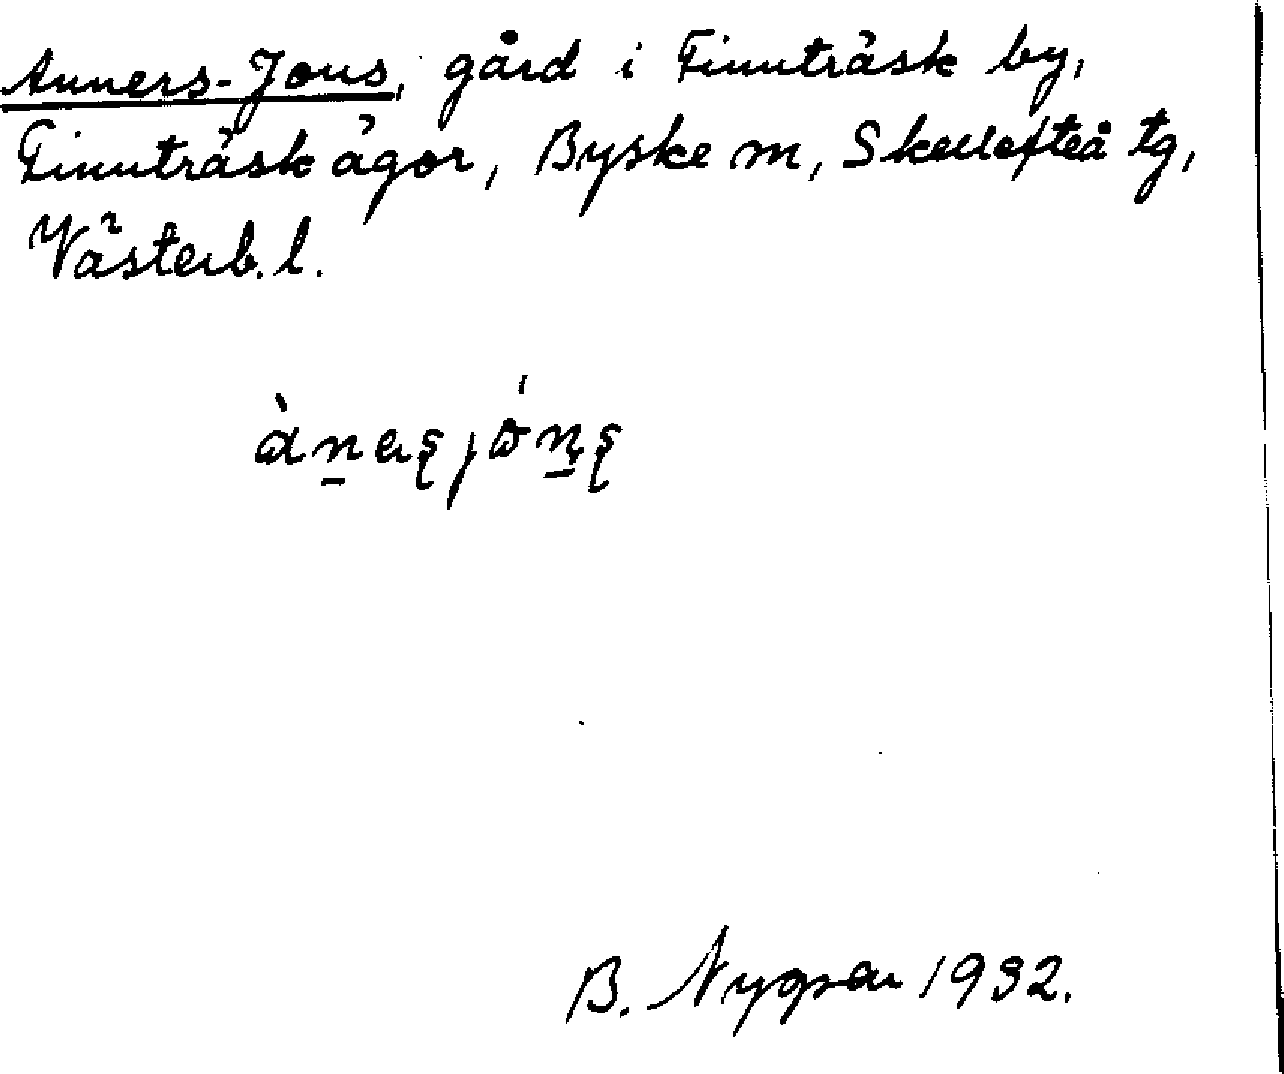 Anners-Jons, gård i Finnträsk by,
Finnträsk ägor, Byske m, Skellefteå tg,
Västerb. l.
B. Nygren 1932.